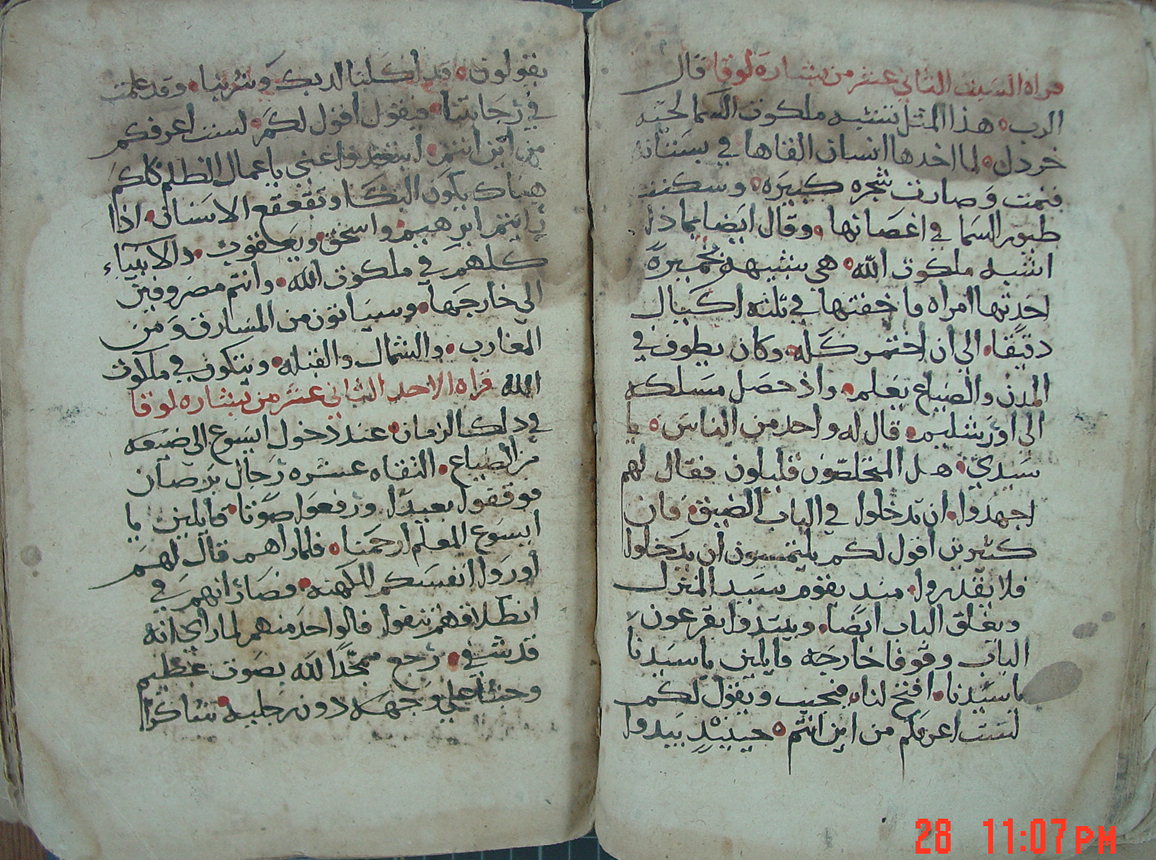 قراة السبت الثاني عشر من بشارة لوقا قال
الرب هذا المثل تشبه ملكوت السما لحبة
خردل لما اخدها انسان القاها في بستانه
فنمت وصارت شجره كبيره وسكنت
طيور السما في اغصانها وقال ايضا بماذا
اشبه ملكوت الله هي مشبهه بخميرة
اخدتها امراه فاخفتها في تلته اكيال
دقيقا الى ان اختمر كله وكان يطوف في
المدن والضياع يعلم واذ حصل مسلكه
الى اورشليم قال له واحد من الناس يا
سيدي هل المخلصون قليلون فقال لهم
اجهدوا ان تدخلوا في الباب الضيق فان
كثيرين اقول لكم يلتمسون ان يدخلوا
فلا يقدروا مند يقوم سيد المنزل
ويغلق الباب ايضا ويبتدوا يقرعون
الباب وقوفا خارجه قايلين يا سيدنا
يا سيدنا افتح لنا فيجيب ويقول لكم
لست اعرفكم من اين انتم حينيذ يبدوا
يقولون قد اكلنا لديك وشربنا وقد علمت
في رحابنا فيقول اقول لكم لست اعرفكم
من اين انتم ابتعدوا عني يا عمال الظلم كلكم
هناك يكون البكا وتقعقع الاسنان اذا
رايتم ابرهيم واسحق ويعقوب والانبياء
كلهم في ملكوت الله وانتم مصروفين
الى خارجها وسياتون من المشارق ومن
المغارب والشمال والقبله ويتكون في ملكوت
الله قراة الاحد الثاني عشر من بشارة لوقا
في دلك الزمان عند دخول ايسوع الى ضيعه
من الضياع التقاه عشره رجال برصان
فوقفوا بعيدا ورفعوا صوتا قايلين يا
ايسوع المعلم ارحمنا فلما راهم قال لهم
اوروا انفسكم للكهنه فصار انهم في
انطلاقهم تنقوا فالواحد منهم لما راي انه
قد شفي رجع ممجدا لله بصوت عظيم
وجثا علي وجهه دون رجليه شاكرا
28 11:07 PM